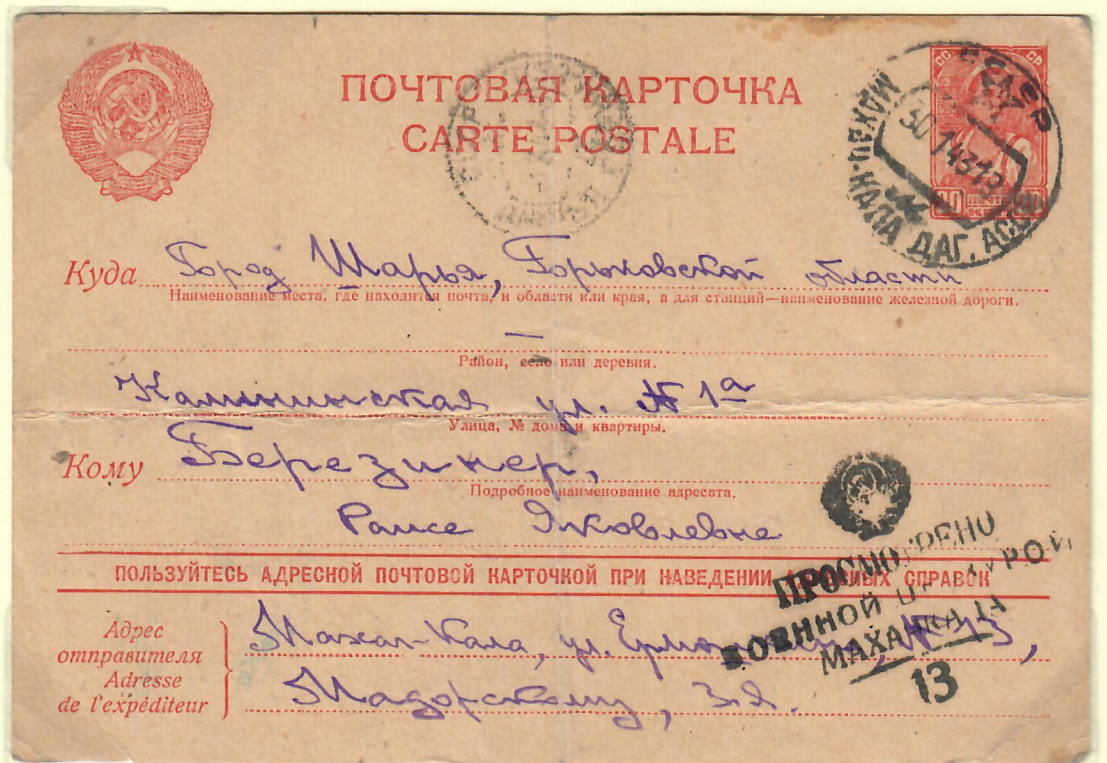 ПОЧТОВАЯ КАРТОЧКА
CARTE POSTALE
СС СР
МАХАЧ-КАЛА ДАГ. АССР
Куда Город Шарья, Горьковской области
Наименование места, где находится почта, и области или края, а для станций—наименование железной дороги.
—
Район, село или деревня.
Калининская ул. № 1а
Улица, № дома и квартиры.
Кому Березинер,
Подробное наименование адресата.
Раисе Яковлевне
ПОЛЬЗУЙТЕСЬ АДРЕСНОЙ ПОЧТОВОЙ КАРТОЧКОЙ ПРИ НАВЕДЕНИИ АДРЕСНЫХ СПРАВОК
ПРОСМОТРЕНО
ВОЕННОЙ ЦЕНЗУРОЙ
МАХАЧКАЛА
13
Адрес
отправителя
Adresse
de l'expéditeur
Махач-Кала, ул. 13,
Мадорскому, З.Я.